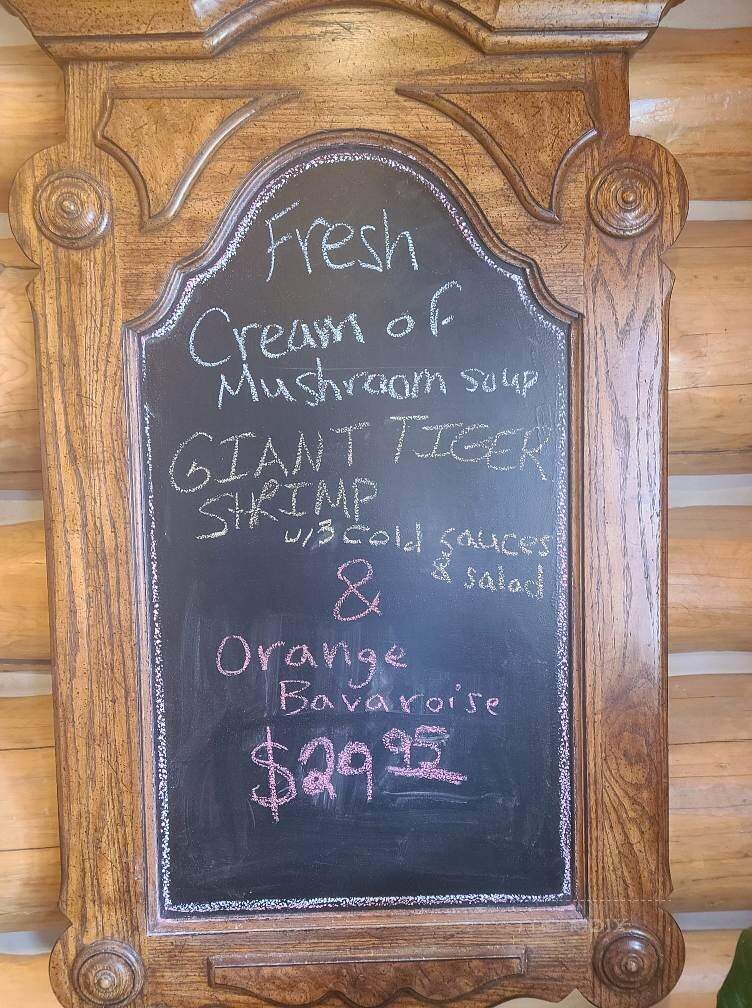 Fresh
Cream of
Mushroom soup
GIANT TIGER
SHRIMP
w/3 cold sauces
& salad
&
Orange
Bavaroise
$29 95